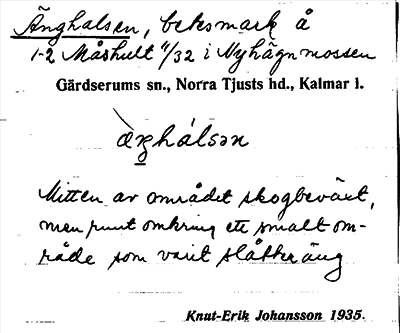 Änghalsen, beksmark å
1-2 Måshult 4/32 i Nyhägnmossen
Gärdserums sn., Norra Tjusts hd., Kalmar l.
æŋhálsən
Mitten av området skogbeväxt,
men runt omkring ett smalt om-
råde som varit slåtteräng
Knut-Erik Johansson 1935.